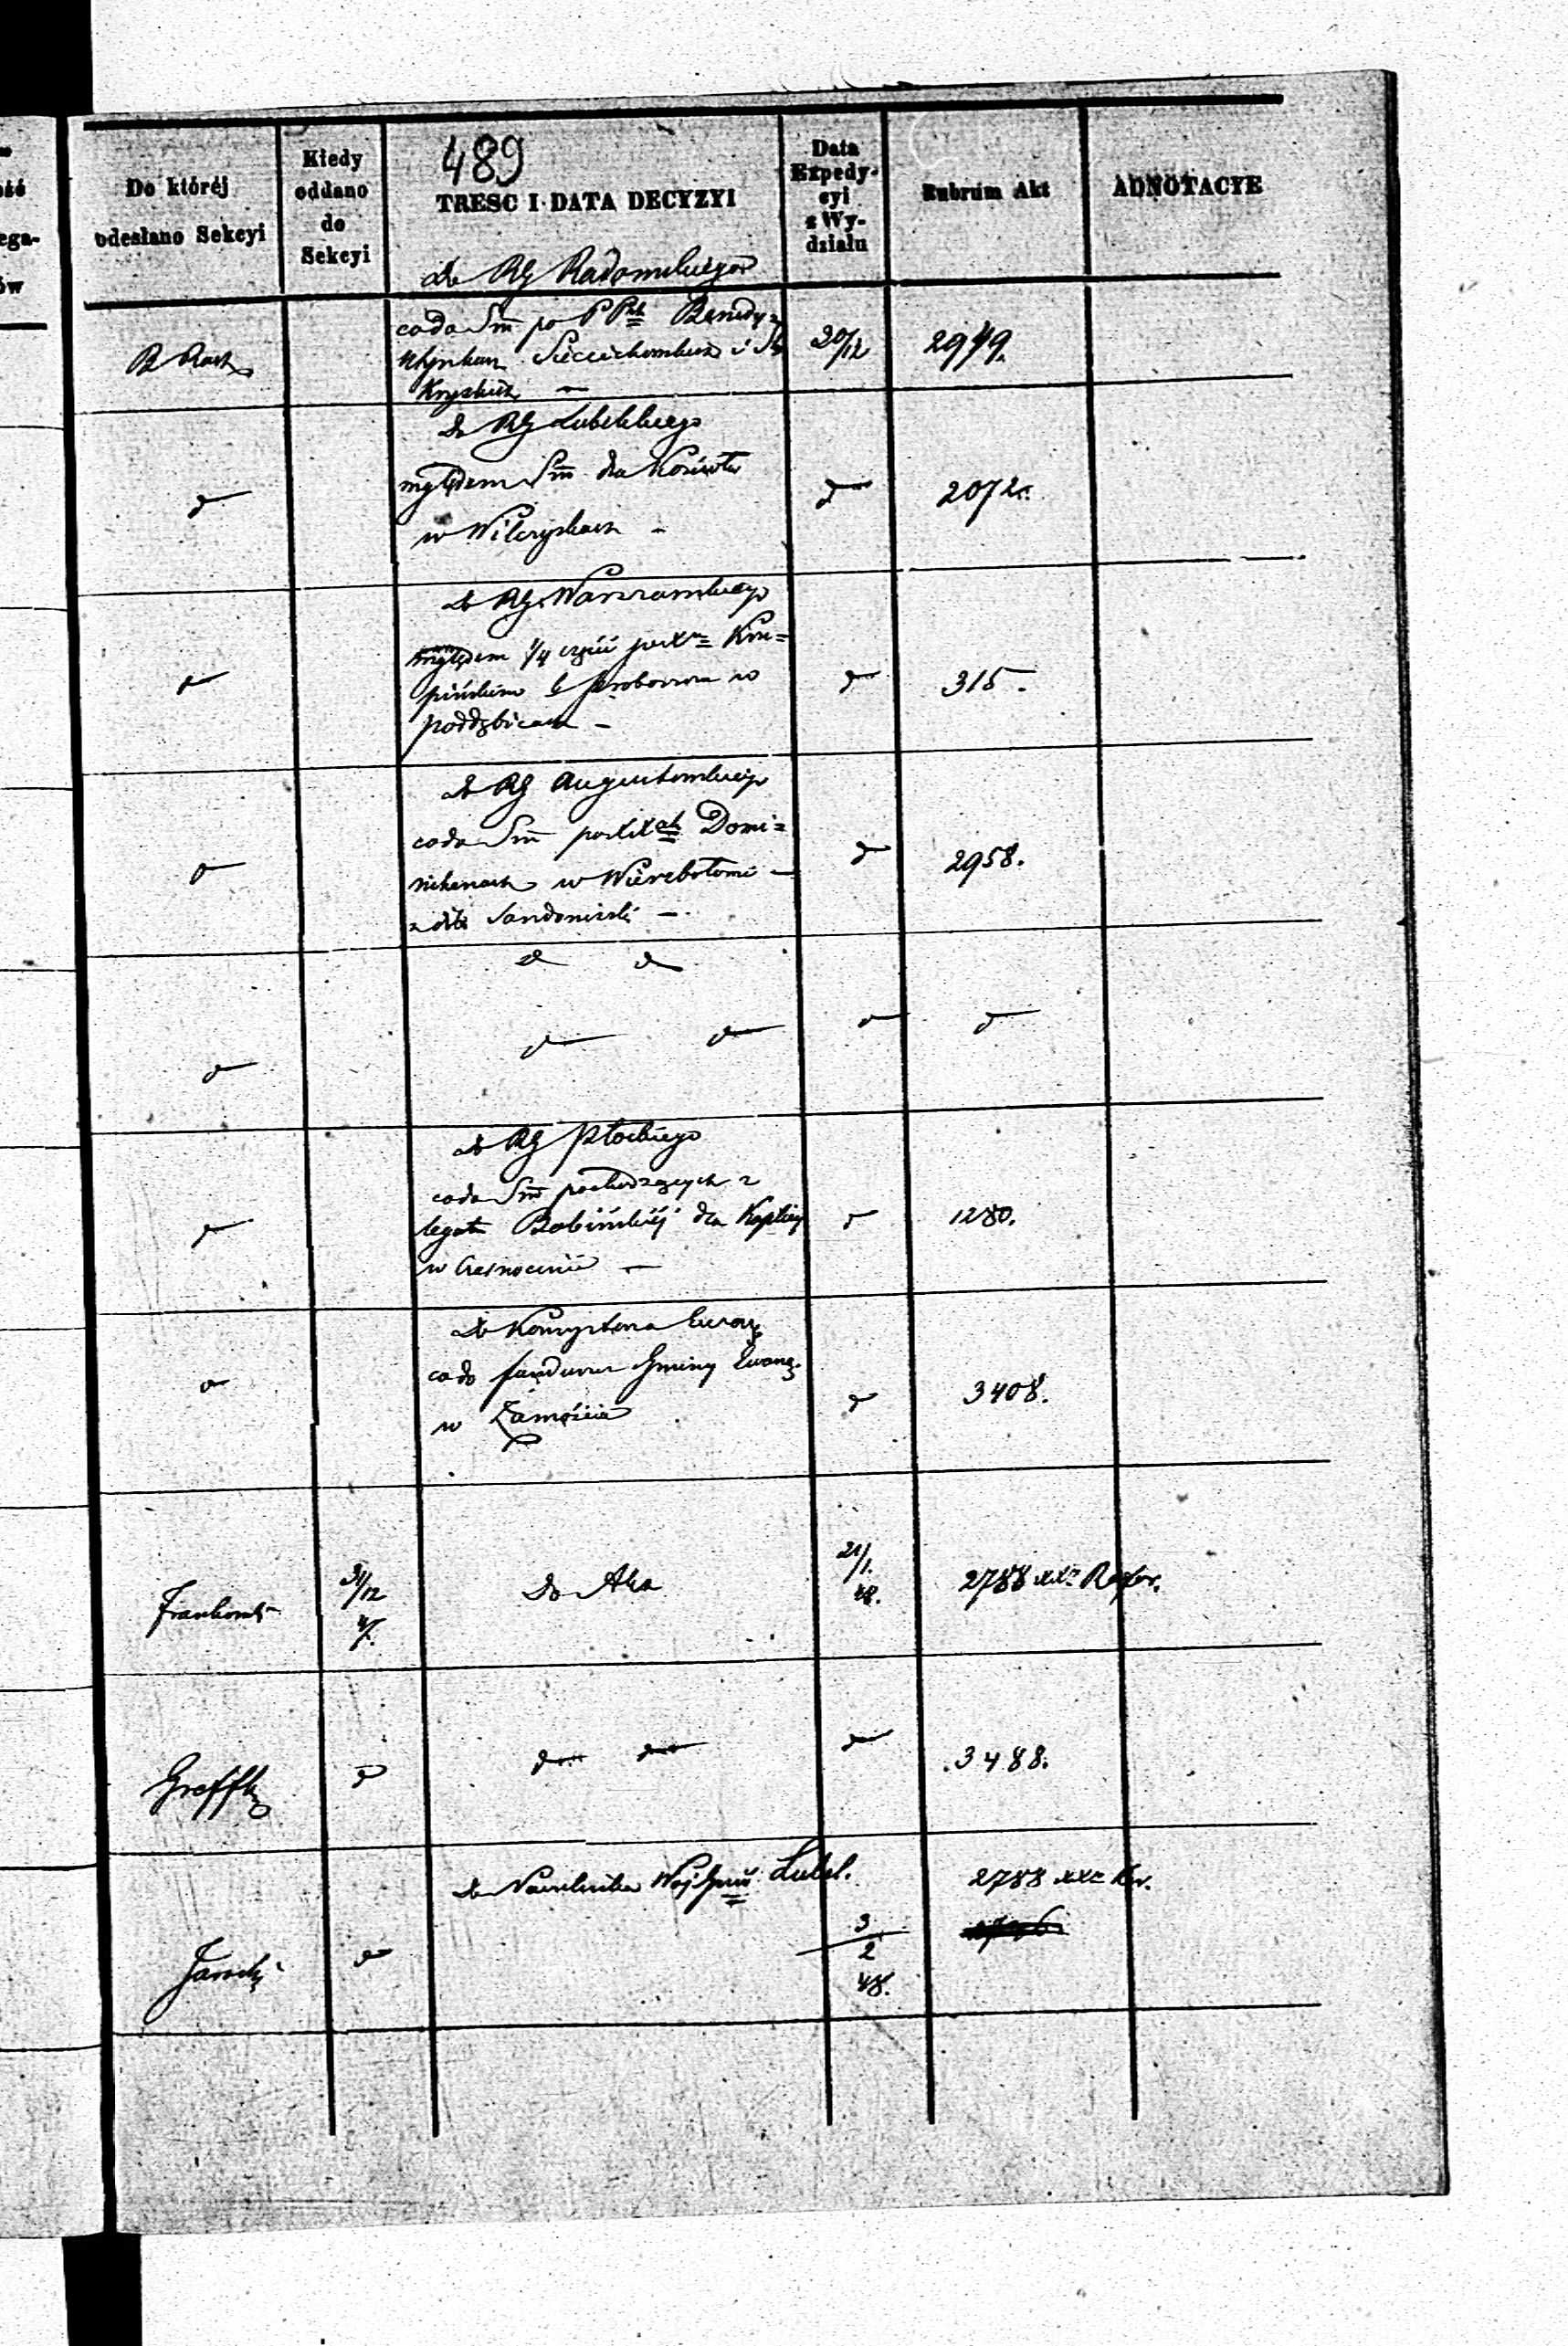 489
Do któréj
odesłano Sekcyi
Kiedy
oddano
do
Sekcyi
TRESC I DATA DECYZYI
Data
Expedy-
cyi
z Wy-
działu
Rubrum Akt
ADNOTACYE
do RG Radomskiego
B Rach
codo Sm po PP Benedy=
ktynkach Sieciechowskich i Sto
Kryskich —
20/12
2949.
do RG Lubelskiego
względem Sm dla Kościoła
w Wilczyskach —
d
d
2072.
do RG Warszawskiego
względem 1/4 części po
pińskim b proboszczu w
poddębicach —
d
d
315.
do RG Augustowskiego
codo Sm po XX Domi=
nikanach w Wierzbołowie —
z dóbr Sandomirski —
d
d
2958.
d d
d d
d
d
d
do RG Płockiego
codo Sm pochodzących z
legatu Bobińskiéj dla Kaplicy
w Krasnocinie —
d
d
1280.
do Konsystorza Ewang
codo funduszu Gminy Ewang.
w Zamościu
d
d
3408.
Frankowski
31/12
47.
do Akt
21/1.
48.
2788
Greffk
d
d d
d
3488.
Jarocki
d
do Naczelnika Woj Lubel.
3
2
48.
2788